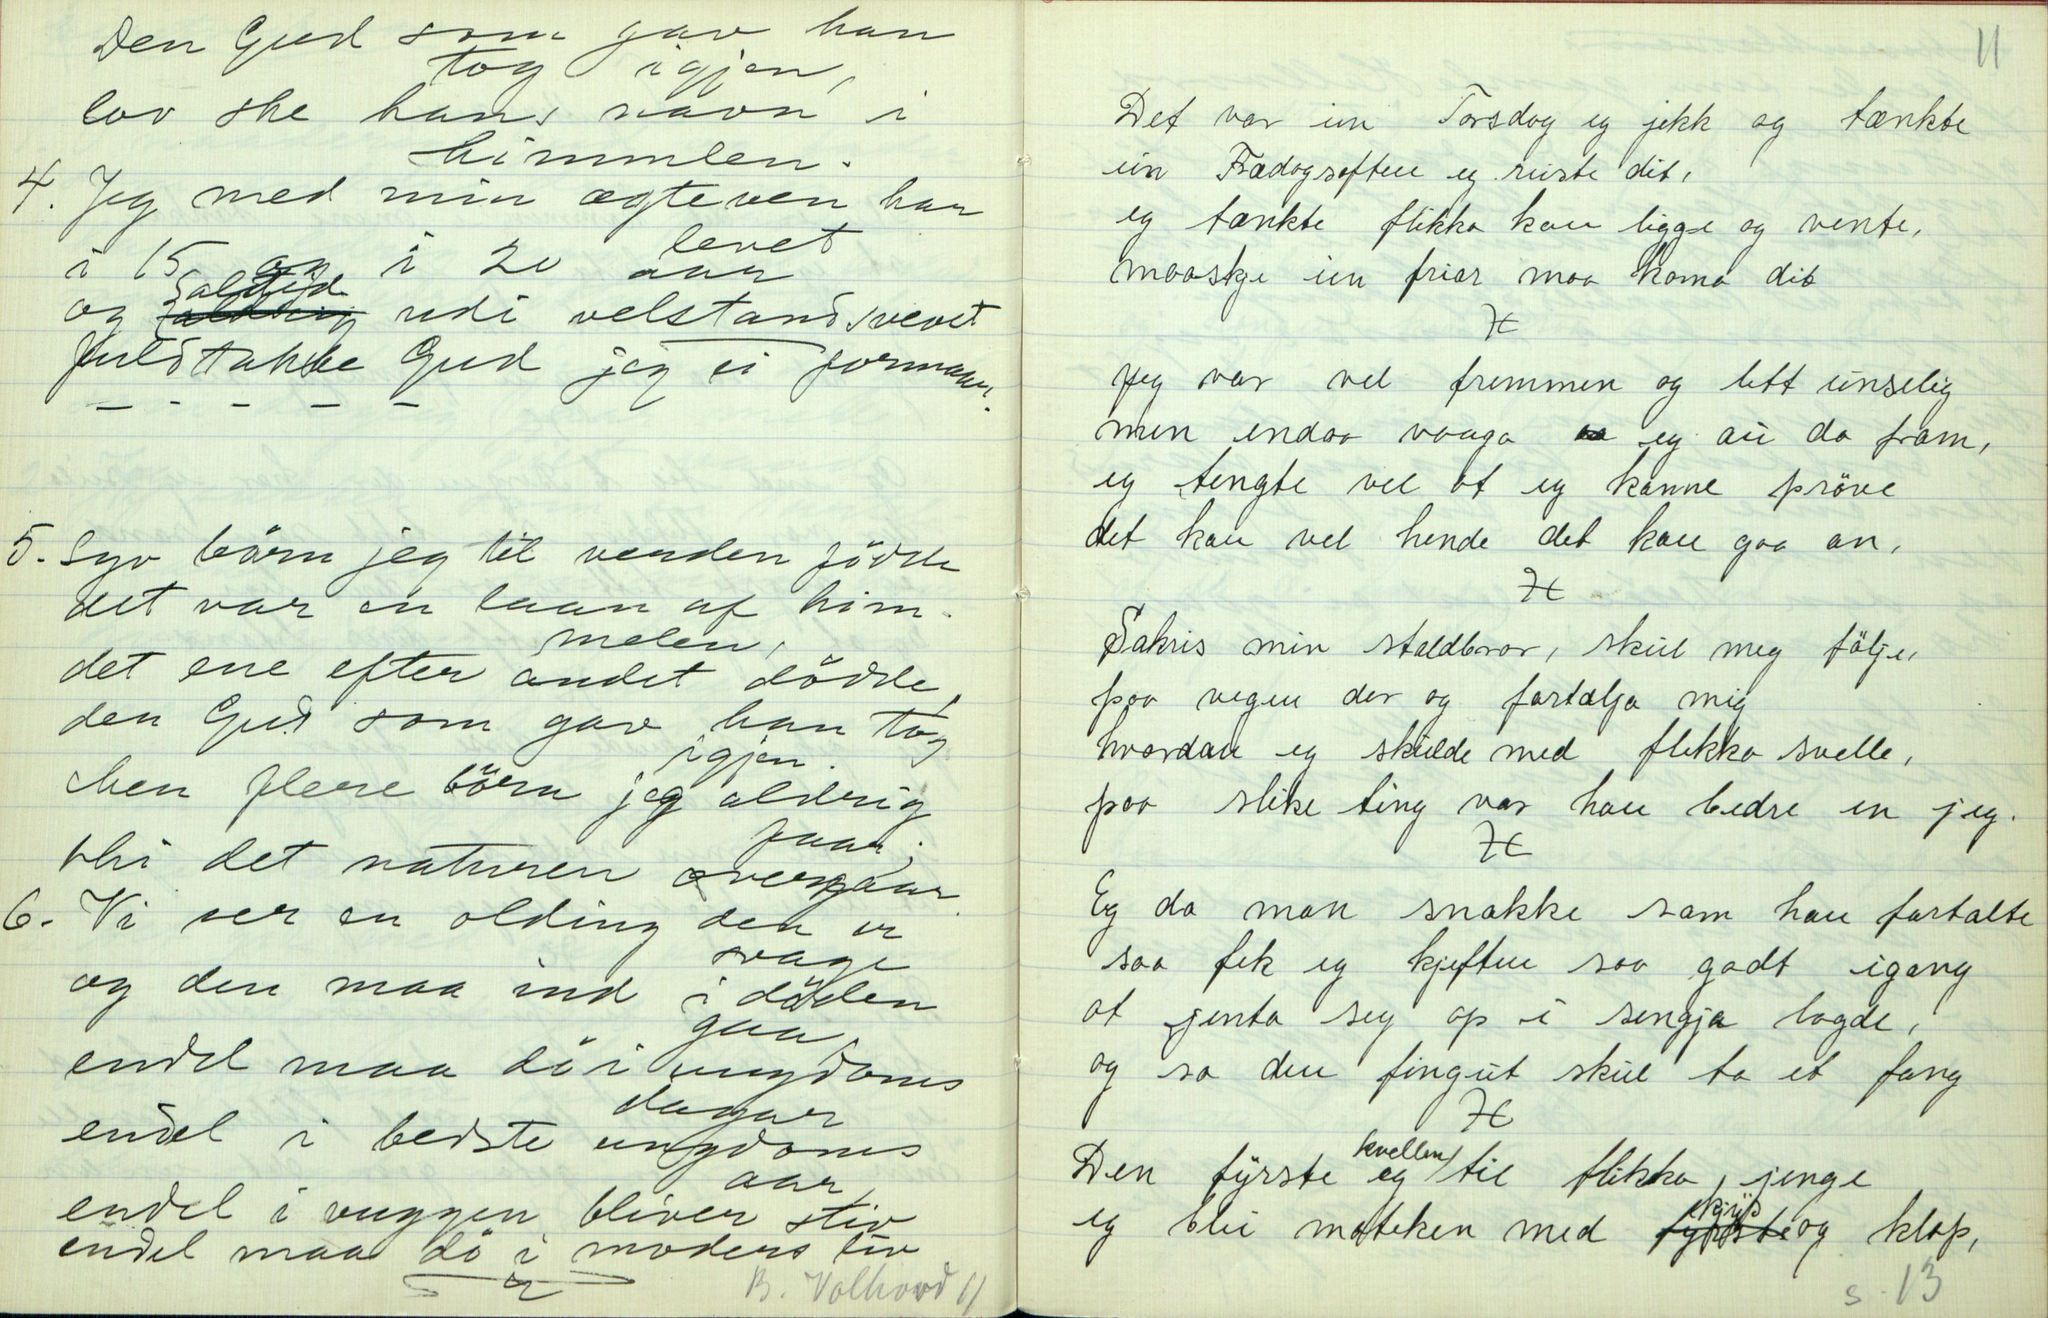 Den Gud som gav han
tog igjen,
lov ske hans navn i
himmlen.
4. Jeg med min ægteven har
levet
i 15 og i 20 aar
altid
og udi velstand svevet
fuldtakke Gud jeg ei formaar.
5. Syv börn jeg til verden födde
det var en laan af him-
melen,
det ene efter andet dödde,
den Gud som gav han tog
igjen.
Men flere börn jeg aldrig
faar,
thi det naturen overgaar.
6. Vi ser en olding den er
svage
og den maa ind i döden
gaa
endel maa dö i ungdoms
dagar
endel i bedste ungdoms
aar,
endel i vuggen bliver stiv
endel maa dö i moders liv
B. Volhovd 11
11
Det var ein Torsdag eg jekk og tænkte
ein Frædagsaften eg reiste dit,
eg tænkte flikka kan ligge og vente,
maaskje ein friar maa koma dit
Jeg var vel fremmen og litt einselig
men endaa vaaga eg au da fram,
eg tengte vel at eg kanne pröve
det kan vel hende det kan gaa an,
Sakris min staldbror, skul meg följe,
paa vegen der og fortælja mig
hvordan eg skulde med flikka svelle,
paa slike ting var han bedre en jeg.
Eg da man snakke som han fortalte
saa fek eg kjeften saa godt igang
at jenta seg op i sengja lagde,
og sa den fingut skul ta et fang
Den fyrste kvellen eg til flikka jenge
eg blei motteken med kjys og klap,
s. 13